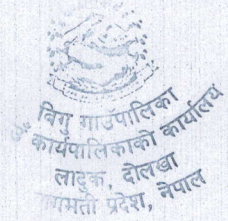 बिगु गाउँपालिका
गाउँ कार्यपालिकाको कार्यालय
लादुक, दोलखा
बागमती प्रदेश, नेपाल